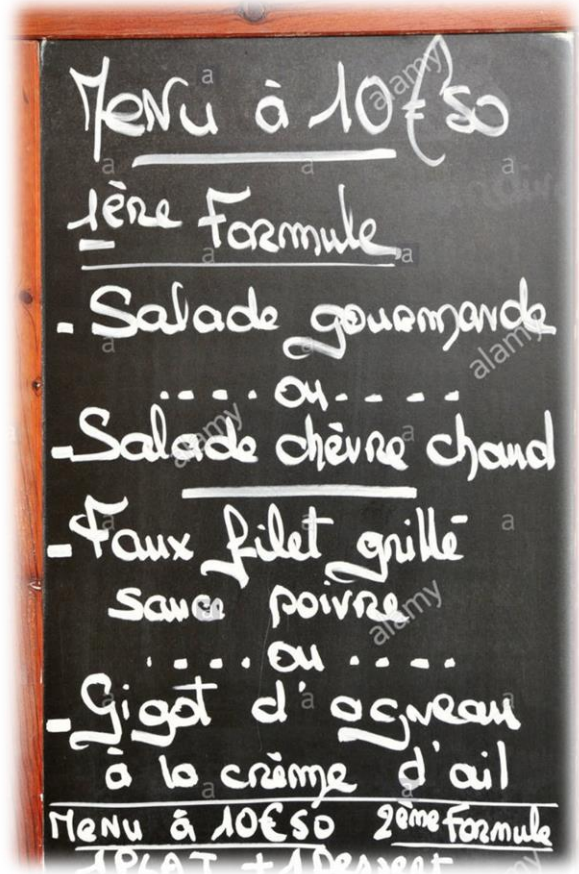 Menu à 10€50
1ère Formule
- Salade gourmande
.... ou ....
- Salade chèvre chaud
- Faux filet grillé
sauce poivre
.... ou ....
- Gigot d'agneau
à la crème d'ail
Menu à 10€50 2ème Formule
1 PLAT + 1 Dessert